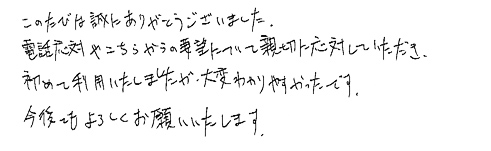 このたびは誠にありがとうございました。
電話応対やこちらからの要望について親切に応対していただき、
初めて利用いたしましたが、大変わかりやすかったです。
今後ともよろしくお願いいたします。